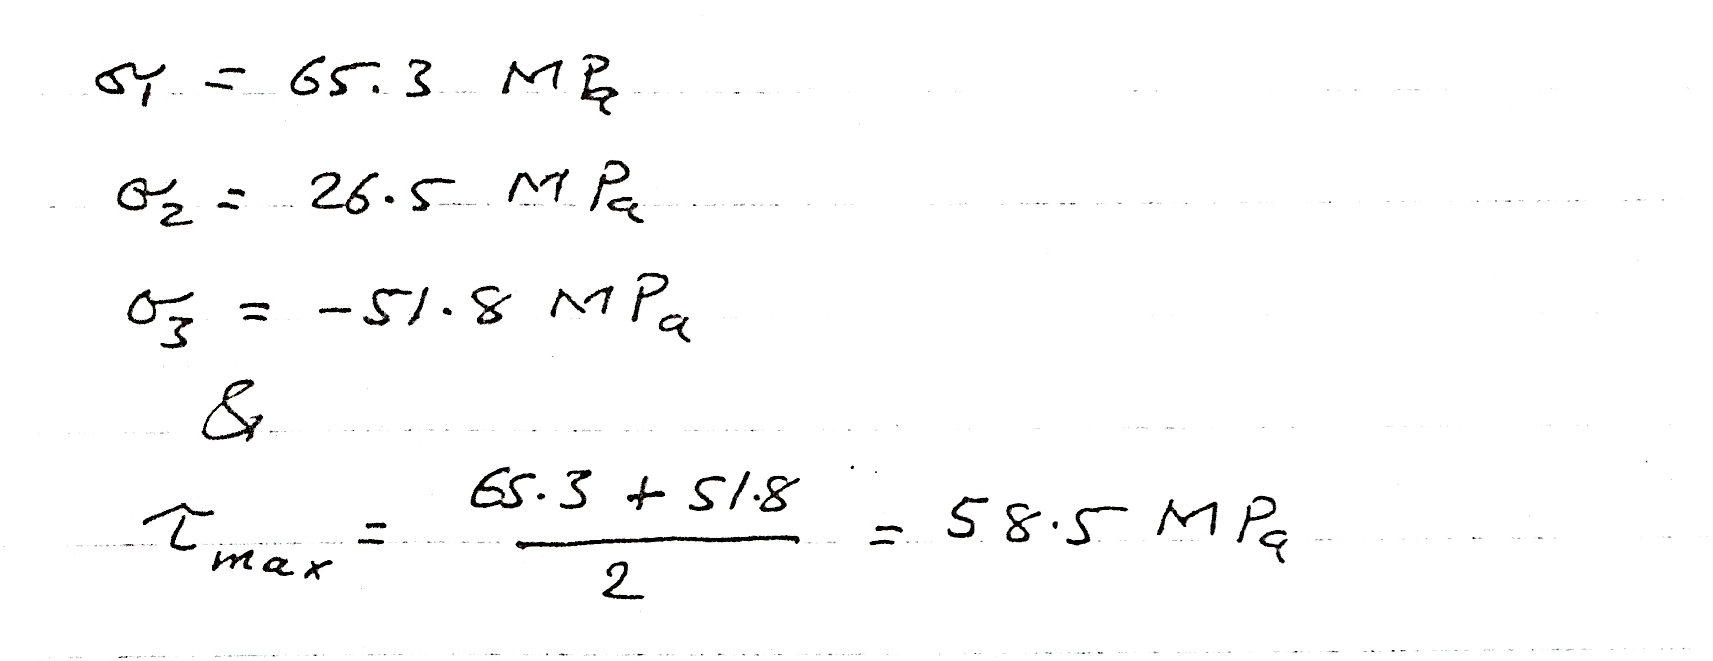 σ₁ = 65.3 MPa
σ₂ = 26.5 MPa
σ₃ = -51.8 MPa
&
τmax = (65.3 + 51.8) / 2 = 58.5 MPa